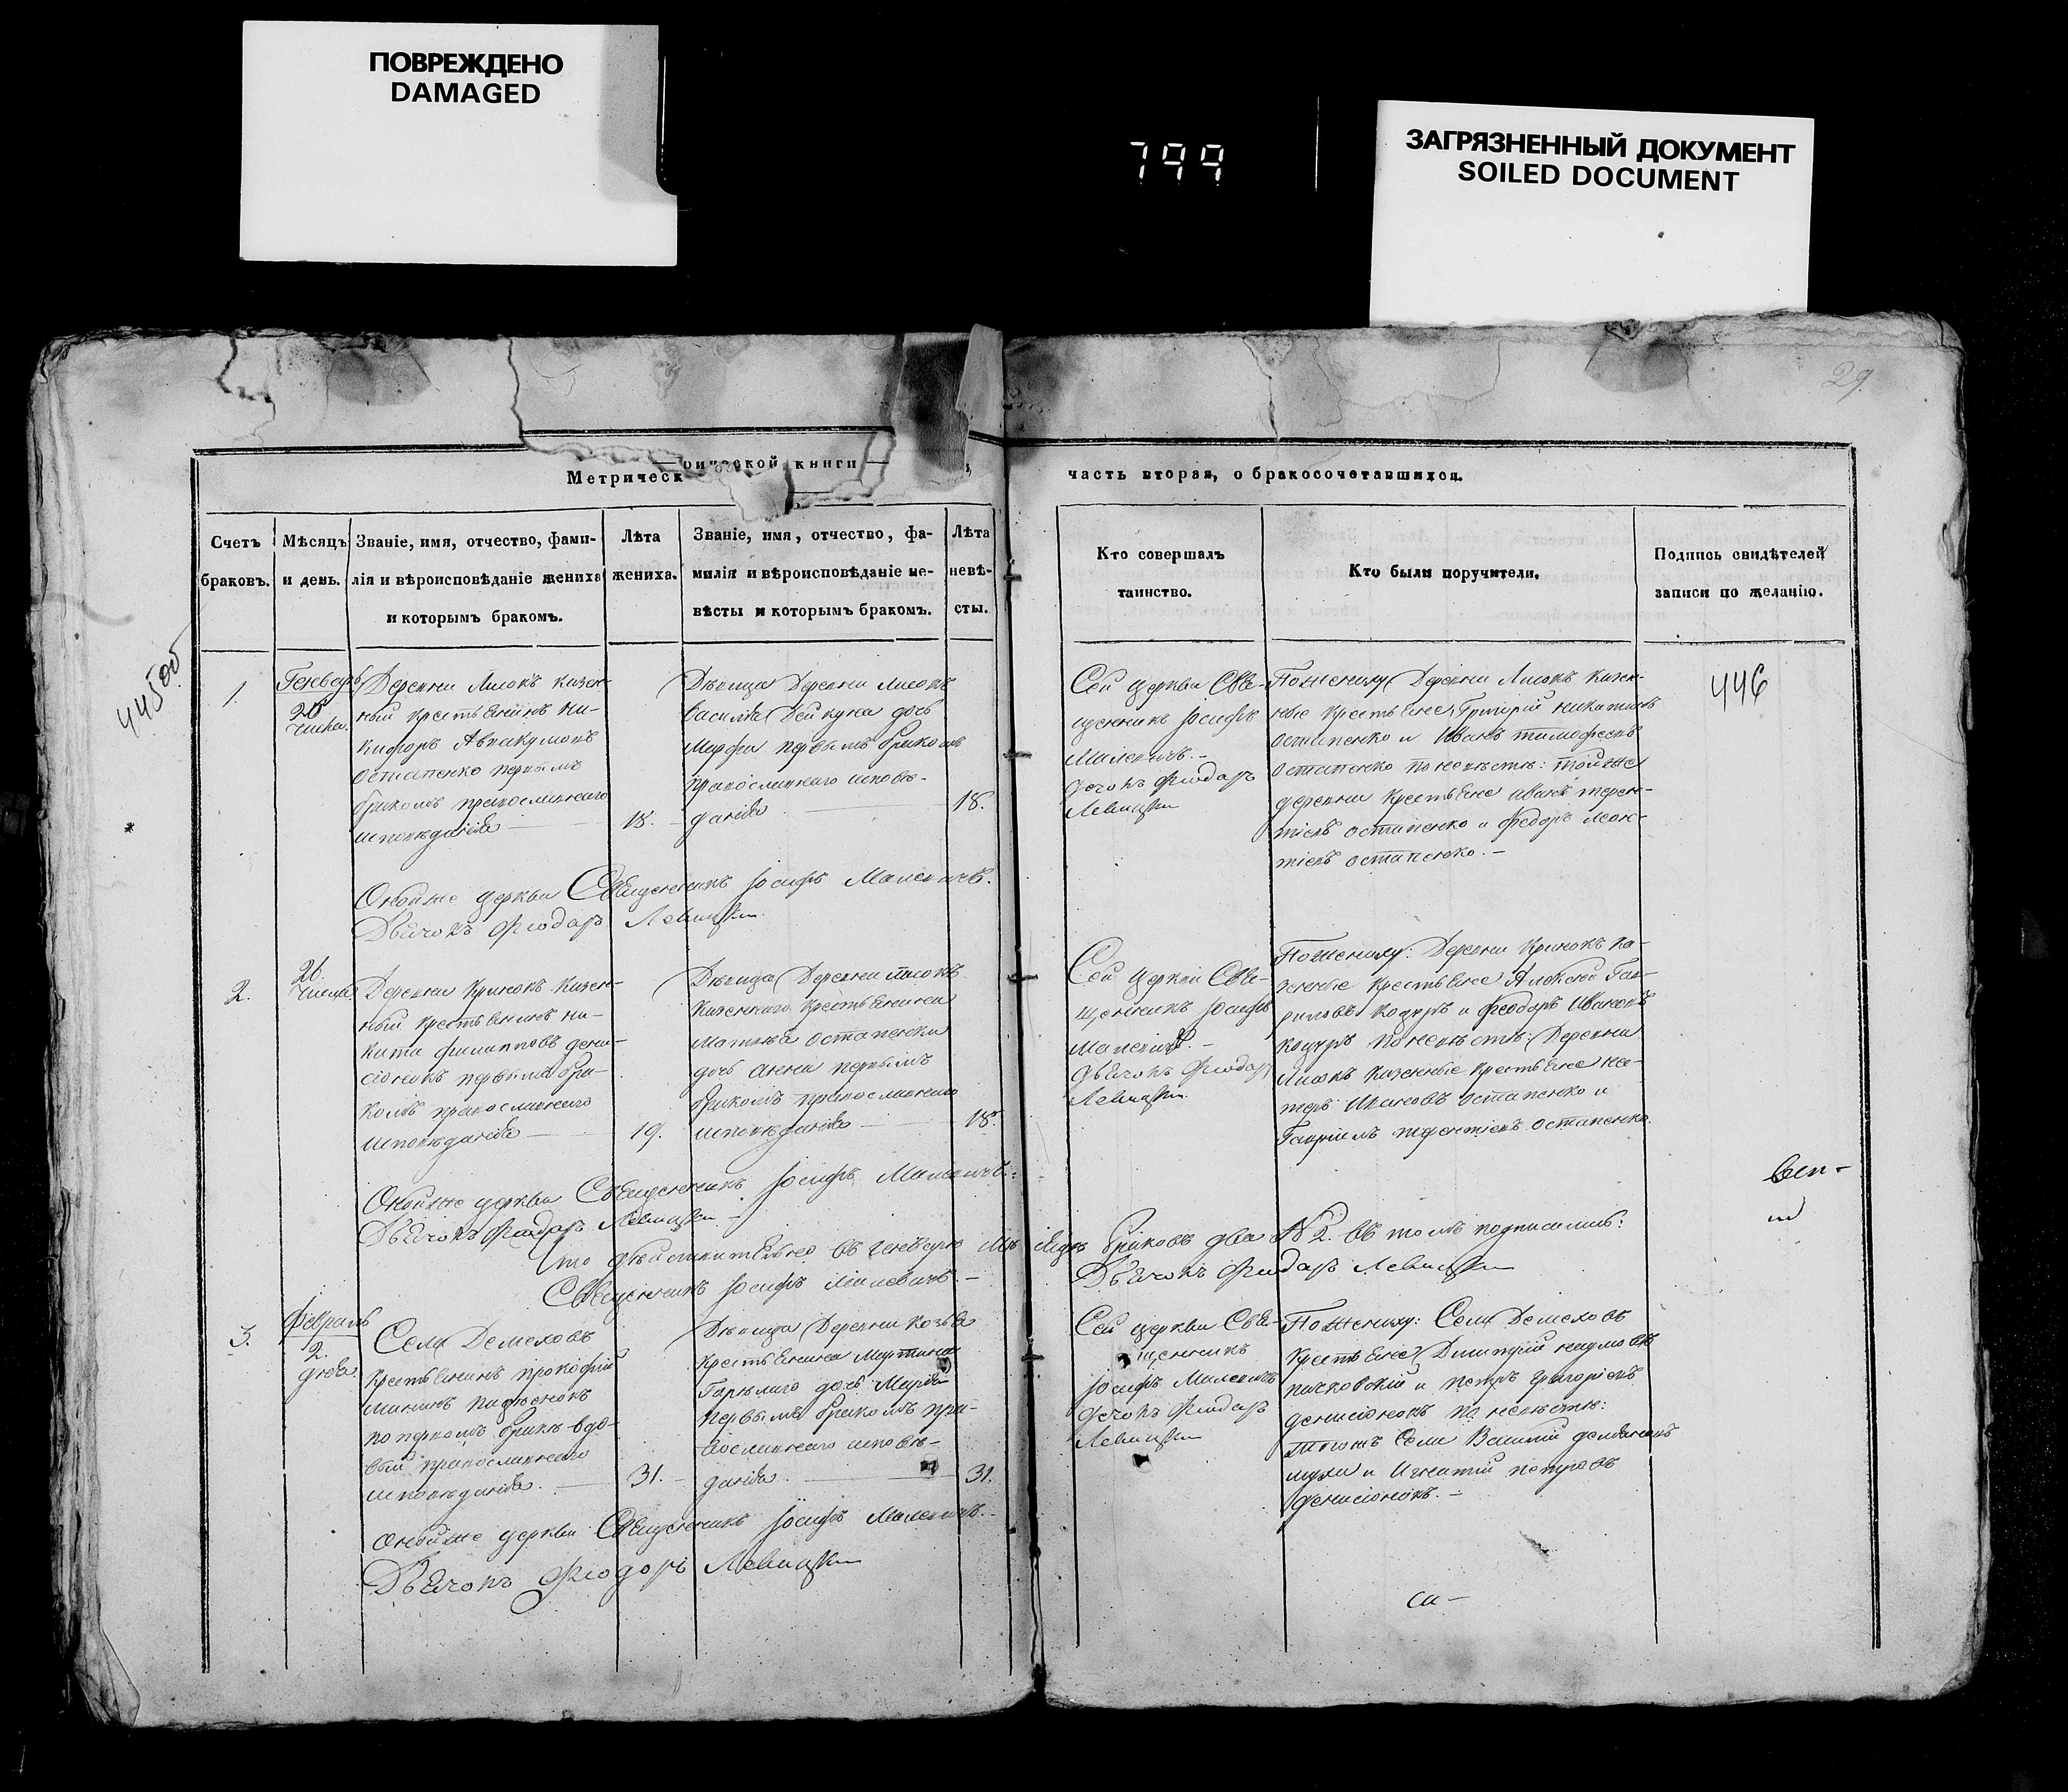 ПОВРЕЖДЕНО
DAMAGED
799
ЗАГРЯЗНЕННЫЙ ДОКУМЕНТ
SOILED DOCUMENT
29.
445 об
Метрическ
рической книги
часть вторая, о бракосочетавшихся.
Счетъ браковъ.
Мѣсяцъ и день.
Званіе, имя, отчество, фами-
лія и вѣроисповѣданіе жениха
и которымъ бракомъ.
Лѣта
жениха.
Званіе, имя, отчество, фа-
милія и вѣроисповѣданіе не-
вѣсты и которымъ бракомъ.
Лѣта
невѣ-
сты.
Кто совершалъ
таинство.
Кто были поручители.
Подпись свидѣтелей
записи по желанію.
1.
Генварь
20
числа.
Деревни Лисокъ казен-
ный крестьенинъ ни-
кифоръ Аввакумовъ
остапенко первымъ
бракомъ православнаго
исповѣданія
18.
Дѣвица Деревни лисокъ
дочь
Марфа первымъ бракомъ
православнаго исповѣ-
данія
18.
Сей церкви Све-
щенникъ Іосифъ
Малевичъ. -
Дечокъ Фіодаръ
Левицки
Пожениху Деревни Лисокъ казен-
ные крестьене Григорій никитинъ
остапенко и Иванъ тимофеевъ
остапенко по невѣстѣ: тойже
деревни крестьене иванъ терен-
тіевъ остапенко и Федоръ леон-
тіевъ остапенко. -
446
Онойже церкви Свещенникъ Іосифъ Малевичъ.
Дьечокъ Фіодаръ Левицки
2.
26.
числа.
Деревни Кринокъ казен-
ный крестьенинъ ни-
кита филипповъ дени-
сіонокъ первымъ бра-
комъ православнаго
исповѣданія
19.
Дѣвица Деревни лисокъ
казеннаго крестьенина
матвѣя остапенки
дочь анна первымъ
бракомъ православнаго
исповѣданія
18.
Сей Церкви Све-
щенникъ Іосифъ
Малевичъ. -
Дьечокъ Фіодаръ
Левицки.
Пожениху: Деревни Кринокъ ка-
зенные крестьене Алексей Гав-
риловъ коцуръ и Феодоръ Ивановъ
коцуръ по невѣстѣ: Деревни
Лисокъ казенные крестьене
Ивановъ остапенко и
Гавріилъ терентіевъ остапенко.
Онойже церкви Свещенникъ Іосифъ Малевичъ.
Дьечокъ Фіодаръ Левицки -
Что дѣйствительно въ генварѣ мѣсяцѣ браковъ два № 2. въ томъ подписались:
Свещенникъ Іосифъ Малевичъ. -
Дьечокъ Фіодаръ Левицки
3.
февраль
2.
дня.
Села Демехова
крестьенинъ прокофій
мининъ
по первомъ бракѣ вдо-
вый православнаго
исповѣданія.
31. -
Дѣвица Деревни
крестьенина Мартина
дочь Марія
первымъ бракомъ пра-
вославнаго исповѣ-
данія.
31.
Сей церкви Све-
щенникъ
Іосифъ Малевичъ
Дечокъ Фіодаръ
Левицки
Пожениху: Села Демехова
крестьене Дмитрій наумовъ
и петръ григоріевъ
денисіонокъ по невѣстѣ:
тогожъ Села
и Игнатій петровъ
денисіонокъ. -
Онойже церкви Свещенникъ Іосифъ Малевичъ.
Дьечокъ Фіодоръ Левицки